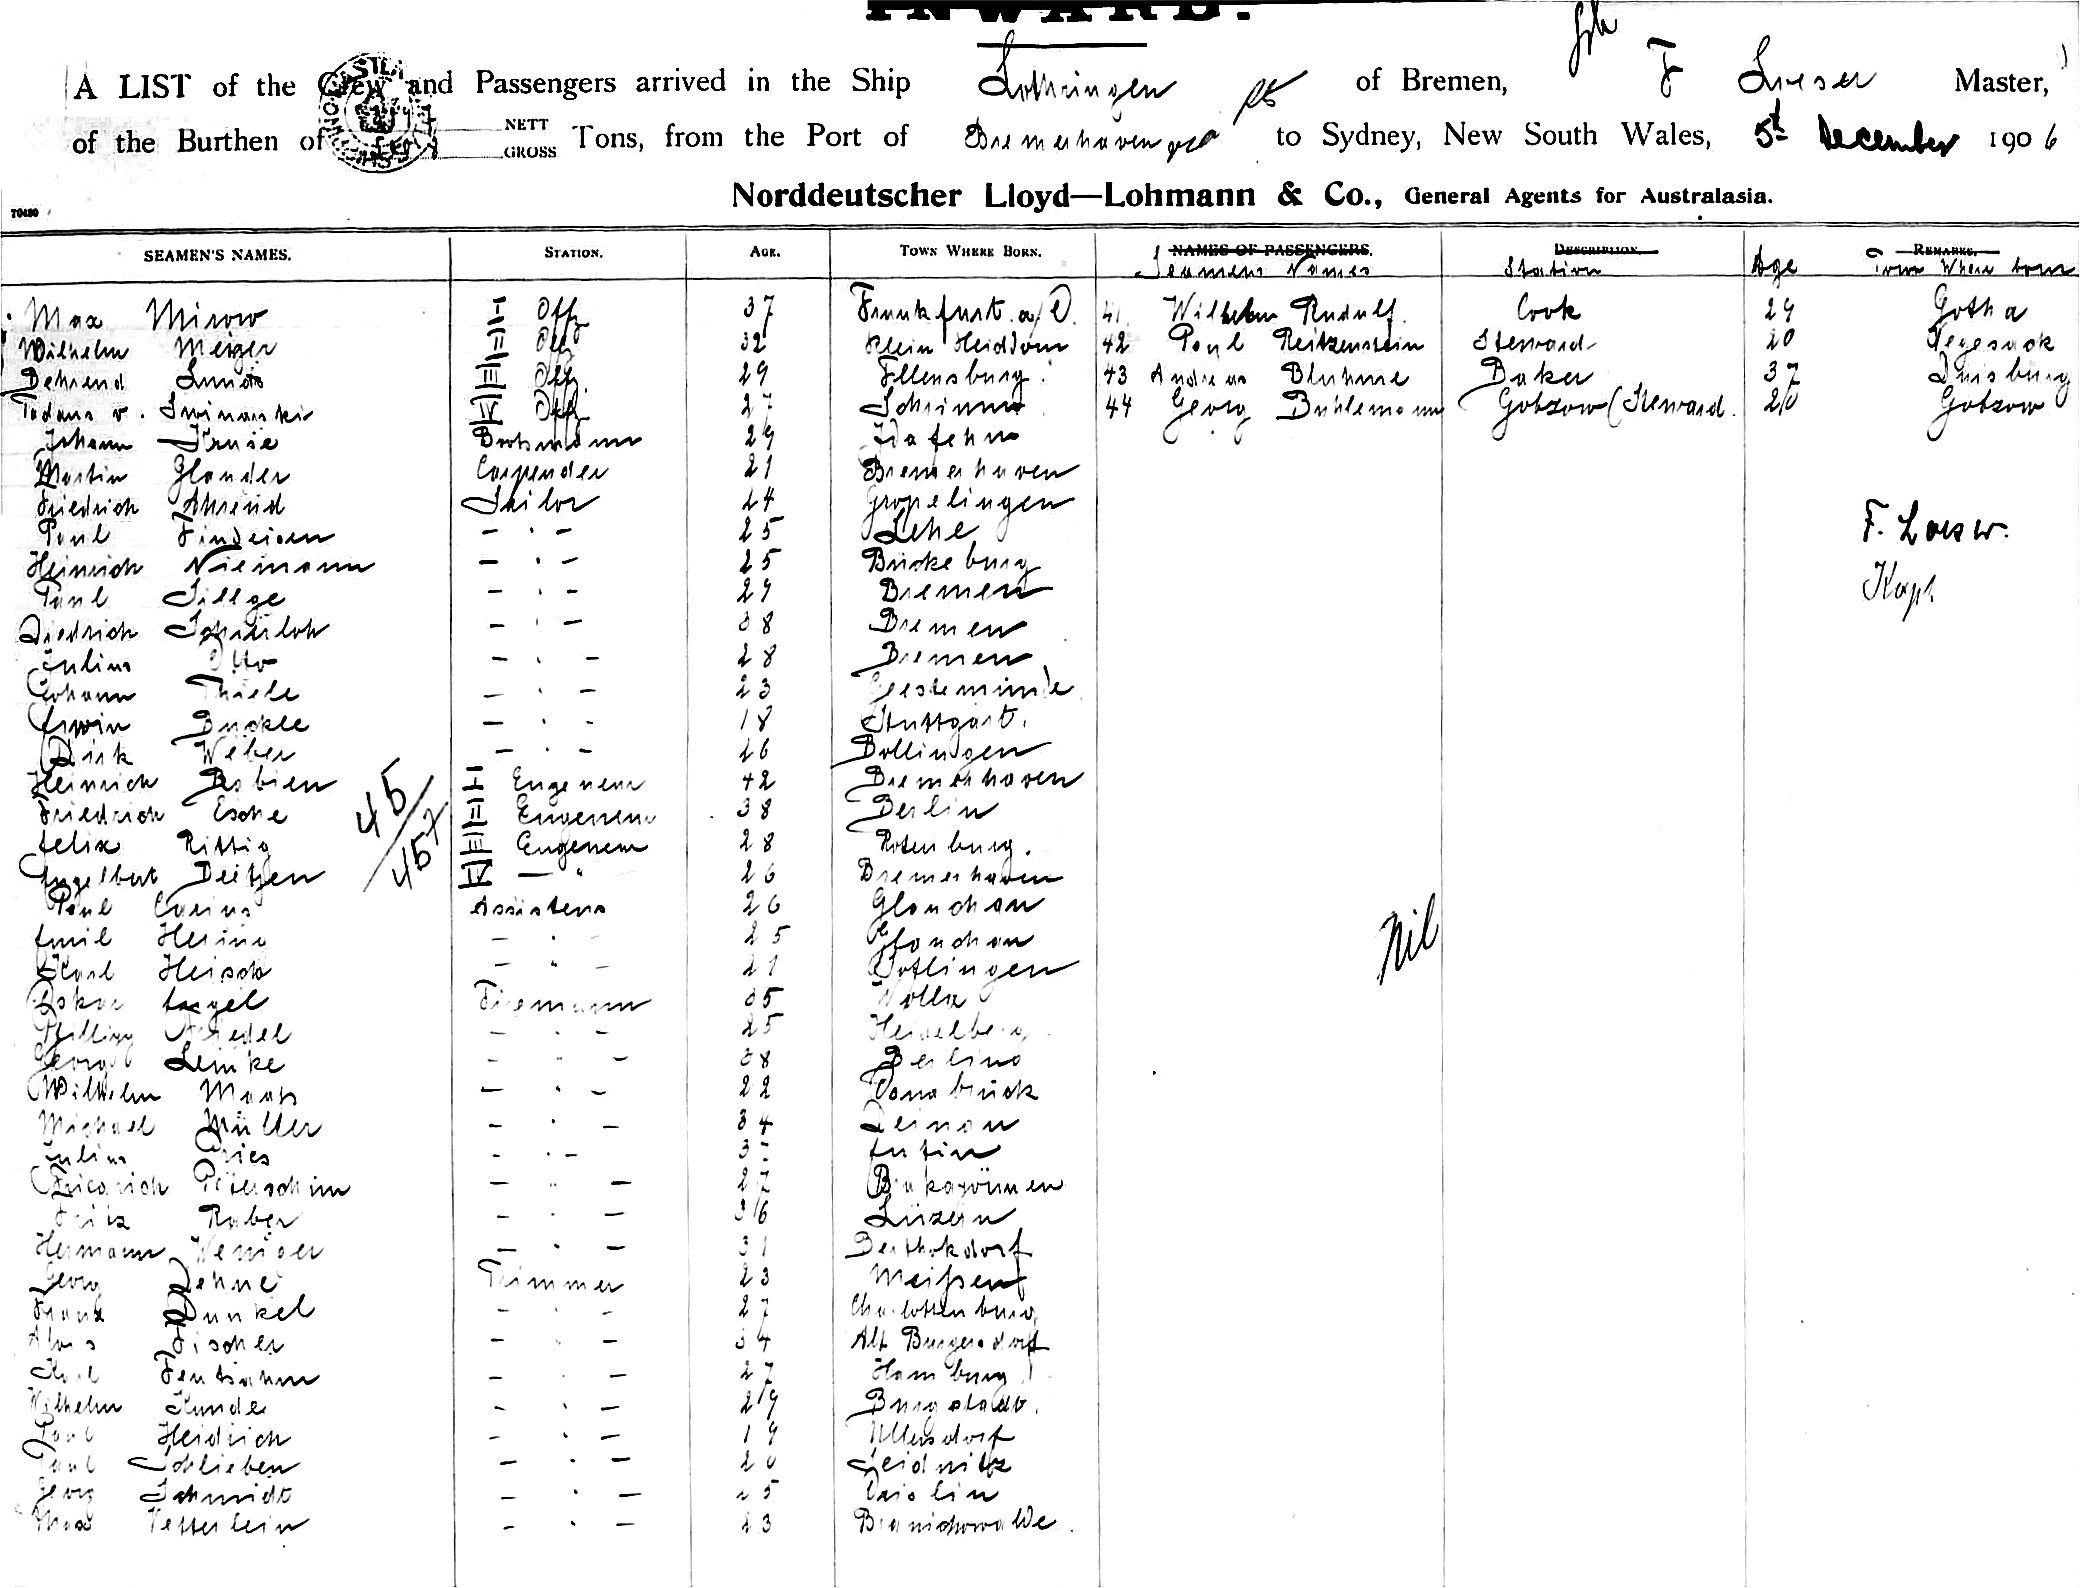 INWARD.
A LIST of the Crew and Passengers arrived in the Ship Lothringen of Bremen, F Loeser Master,
of the Burthen of NETT GROSS Tons, from the Port of Bremerhaven to Sydney, New South Wales, 5th December 1906
Norddeutscher Lloyd—Lohmann & Co., General Agents for Australasia.
SEAMEN'S NAMES. STATION. AGE. TOWN WHERE BORN. NAMES OF PASSENGERS. DESCRIPTION. REMARKS.
Seamens Names Station Age Town Where born
Max Mirow I Offz 37 Frankfurt a/O. 41. Wilhelm Rudolf. Cook 29 Gotha
Wilhelm Meiger II Offz 32 Klein Heidorn 42 Paul Reitzenstein Steward 20 Vegesack
Behrend III Offz. 29 Fllensburg. 43 Andreas Bluhme Baker 37 Duisburg
IV Offz 27 Schrimm 44 Georg Buhlemann Gotzow (Steward. 20 Gotzow
Johann Kruse Bootsmann 29 Idafehn
Martin Glander Carpender 21 Bremerhaven
Friedrich Ahrend Sailor 24 Gropelingen
Paul Findeisen - · - 25 Lehe F. Loeser.
Heinrich Niemann - · - 25 Bückeburg
Paul Tillge - · - 29 Bremen Kapt.
Diedrich - · - 38 Bremen
Julius Otto - · - 28 Bremen
Johann Thiele - · - 23 Geestemünde
Erwin Buckle - · - 18 Stuttgart.
Dirk Weber - · - 26 Bollingen
Heinrich Dobien I Engeneur 42 Bremerhaven
Friedrich Esche II Engeneur 38 Berlin
45/457
Felix Rittig III Engeneur 28 Rotenburg.
Engelbert Deetjen IV - " 26 Bremerhaven
Paul Carius Assistens 26 Glauchau
Emil Hering - · - 25 Glauchau
Nil
Karl Heisch - " - 21
Oskar Engel Firemann 35 Wolla
Phillipp Friedel - · - 25 Heidelberg
Georg Lemke - " - 38 Berlino
Wilhelm Maats - · - 22 Osnabrück
Michael Müller - · - 34
Julius Pries - · - Eutin
Friedrich - " - 27
Fritz Raber - · - 36 Lüzern
Hermann Weniger - · - 31 Berthokdorf
Georg Zehne Trimmer 23 Meißen
Franz Dunkel - · - 27 Charlottenburg
Alois Fischer - · - 34 Alt Burgersdorf
Karl - · - 27 Hamburg
Wilhelm Kunde - · - 29 Burgstadt.
Paul Heidrich - · - 19 Ullersdorf
Paul Schlieben - · - 20 Leidnitz
Georg Schmidt - · - 25
Max Vetterlein - · - 23